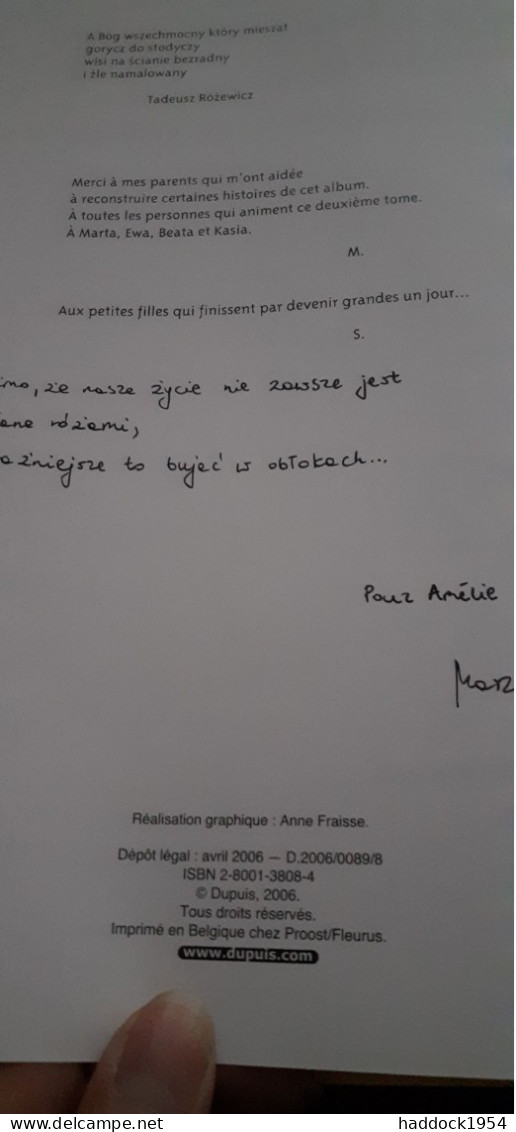 A Bóg wszechmocny który mieszał
gorycz do słodyczy
wisi na ścianie bezradny
i źle namalowany
Tadeusz Różewicz
Merci à mes parents qui m'ont aidée
à reconstruire certaines histoires de cet album.
À toutes les personnes qui animent ce deuxième tome.
À Marta, Ewa, Beata et Kasia.
M.
Aux petites filles qui finissent par devenir grandes un jour...
S.
imo, że nasze życie nie zawsze jest
ane różami,
ażniejsze to bujać w obłokach...
Pour Amélie
Marz
Réalisation graphique : Anne Fraisse.
Dépôt légal : avril 2006 — D.2006/0089/8
ISBN 2-8001-3808-4
© Dupuis, 2006.
Tous droits réservés.
Imprimé en Belgique chez Proost/Fleurus.
www.dupuis.com
haddock1954